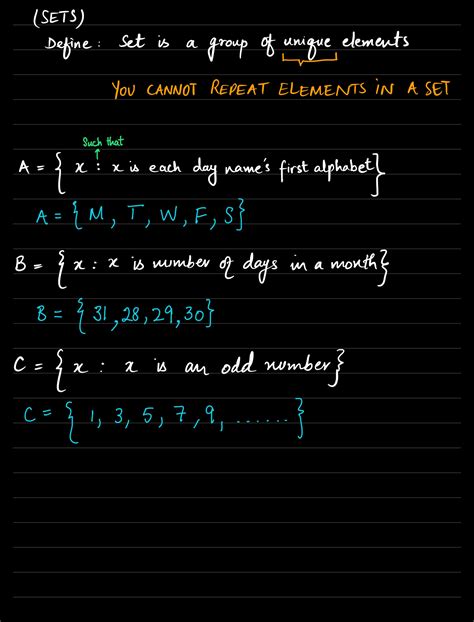 (SETS)
Define : Set is a group of unique elements
YOU CANNOT REPEAT ELEMENTS IN A SET
Such that
A = { x : x is each day name's first alphabet}
A = { M , T , W , F , S }
B = { x : x is number of days in a month}
B = { 31 , 28 , 29 , 30 }
C = { x : x is an odd number }
C = { 1, 3, 5, 7, 9, ...... }